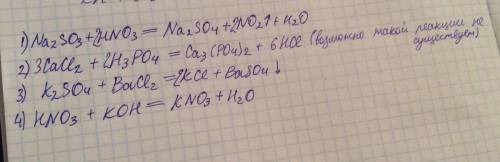 1) Na₂SO₃ + 2HNO₃ = Na₂SO₄ + 2NO₂↑ + H₂O
2) 3CaCl₂ + 2H₃PO₄ = Ca₃(PO₄)₂ + 6HCl (возможно такой реакции не существует)
3) K₂SO₄ + BaCl₂ = 2KCl + BaSO₄ ↓
4) HNO₃ + KOH = KNO₃ + H₂O